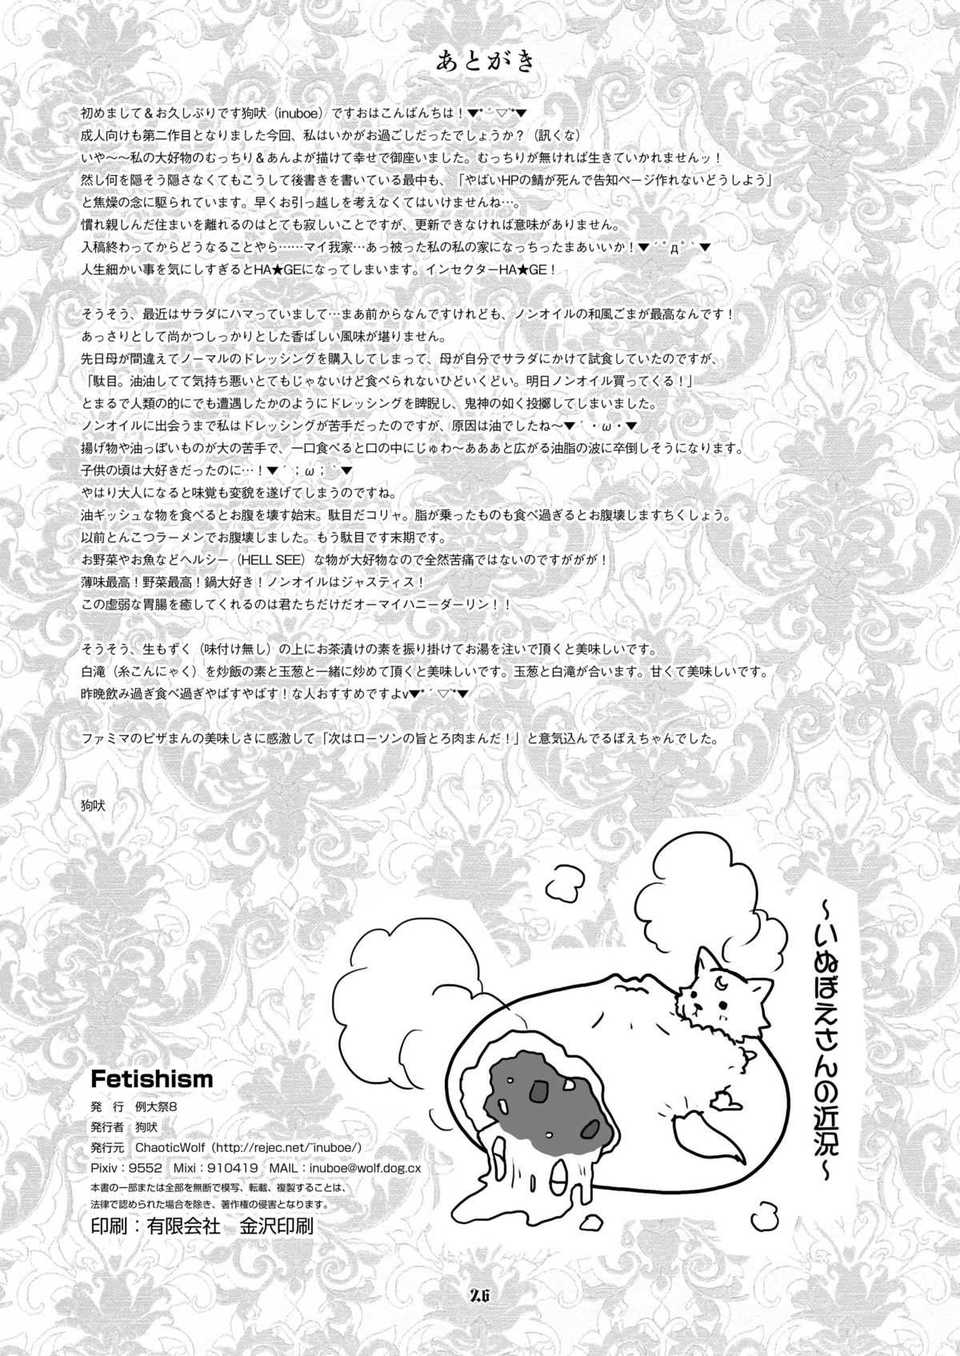 あとがき
初めまして＆お久しぶりです狗吠（inuboe）ですおはこんばんちは！▼*´▽`*▼
成人向けも第二作目となりました今回、私はいかがお過ごしだったでしょうか？（訊くな）
いや〜〜私の大好物のむっちり＆あんよが描けて幸せで御座いました。むっちりが無ければ生きていかれませんッ！
然し何を隠そう隠さなくてもこうして後書きを書いている最中も、「やばいHPの鯖が死んで告知ページ作れないどうしよう」
と焦燥の念に駆られています。早くお引っ越しを考えなくてはいけませんね…。
慣れ親しんだ住まいを離れるのはとても寂しいことですが、更新できなければ意味がありません。
入稿終わってからどうなることやら……マイ我家…あっ被った私の私の家になっちったまあいいか！▼´ﾟдﾟ`▼
人生細かい事を気にしすぎるとHA★GEになってしまいます。インセクターHA★GE！
そうそう、最近はサラダにハマっていまして…まあ前からなんですけれども、ノンオイルの和風ごまが最高なんです！
あっさりとして尚かつしっかりとした香ばしい風味が堪りません。
先日母が間違えてノーマルのドレッシングを購入してしまって、母が自分でサラダにかけて試食していたのですが、
「駄目。油油してて気持ち悪いとてもじゃないけど食べられないひどいくどい。明日ノンオイル買ってくる！」
とまるで人類の的にでも遭遇したかのようにドレッシングを睥睨し、鬼神の如く投擲してしまいました。
ノンオイルに出会うまで私はドレッシングが苦手だったのですが、原因は油でしたね〜▼´・ω・▼
揚げ物や油っぽいものが大の苦手で、一口食べると口の中にじゅわ〜あああと広がる油脂の波に卒倒しそうになります。
子供の頃は大好きだったのに…！▼´；ω；`▼
やはり大人になると味覚も変貌を遂げてしまうのですね。
油ギッシュな物を食べるとお腹を壊す始末。駄目だコリャ。脂が乗ったものも食べ過ぎるとお腹壊しますちくしょう。
以前とんこつラーメンでお腹壊しました。もう駄目です末期です。
お野菜やお魚などヘルシー（HELL SEE）な物が大好物なので全然苦痛ではないのですががが！
薄味最高！野菜最高！鍋大好き！ノンオイルはジャスティス！
この虚弱な胃腸を癒してくれるのは君たちだけだオーマイハニーダーリン！！
そうそう、生もずく（味付け無し）の上にお茶漬けの素を振り掛けてお湯を注いで頂くと美味しいです。
白滝（糸こんにゃく）を炒飯の素と玉葱と一緒に炒めて頂くと美味しいです。玉葱と白滝が合います。甘くて美味しいです。
昨晩飲み過ぎ食べ過ぎやばすやばす！な人おすすめですよv▼*´▽`*▼
ファミマのピザまんの美味しさに感激して「次はローソンの旨とろ肉まんだ！」と意気込んでるぼえちゃんでした。
狗吠
〜いぬぼえさんの近況〜
Fetishism
発　行　例大祭8
発行者　狗吠
発行元　ChaoticWolf（http://rejec.net/~inuboe/）
Pixiv：9552　Mixi：910419　MAIL：inuboe@wolf.dog.cx
本書の一部または全部を無断で模写、転載、複製することは、
法律で認められた場合を除き、著作権の侵害となります。
印刷：有限会社　金沢印刷
26